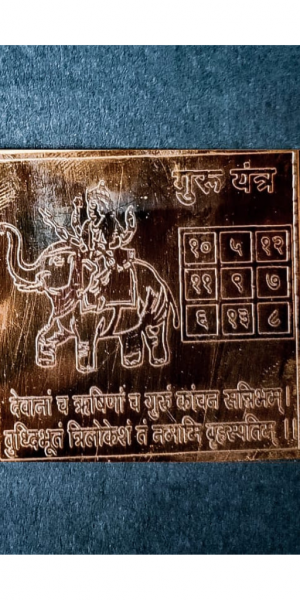 गुरू यंत्र
१० ५ १२
११ ९ ७
६ १३ ८
देवानां च ऋषिणां च गुरुं कांचन सन्निभम् |
बुध्दिभूतं त्रिलोकेशं तं नमामि बृहस्पतिम् ||